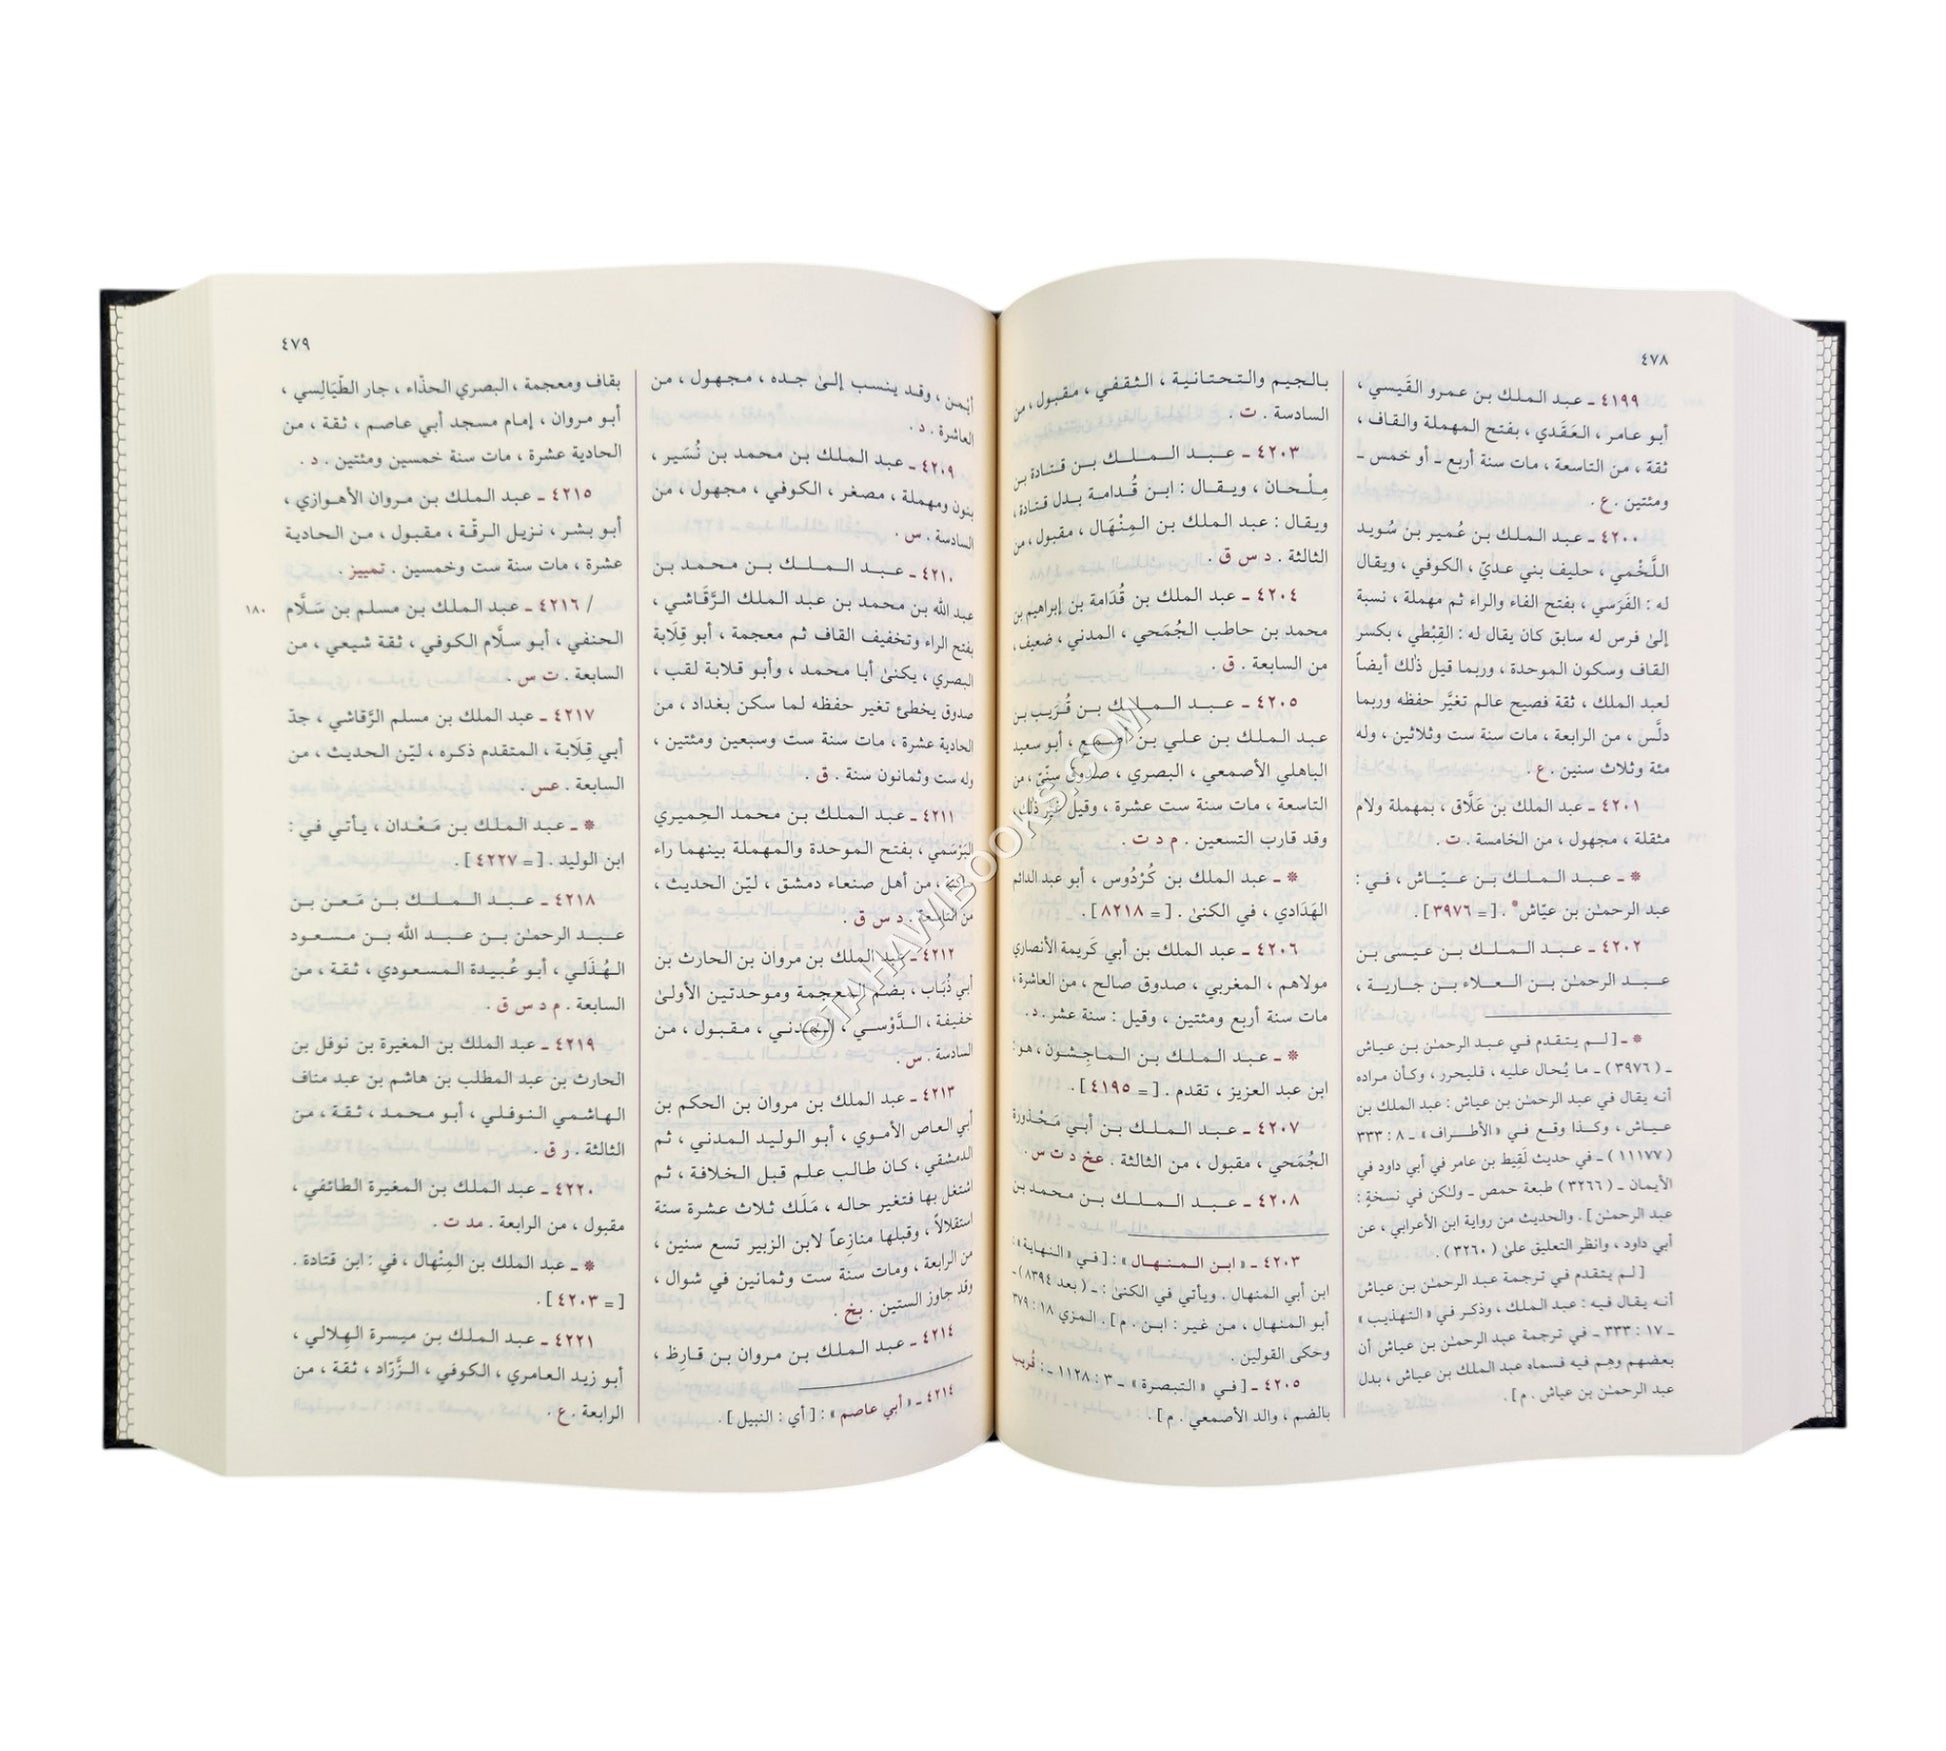 ٤٧٨
٤١٩٩ ـ عبد الملك بن عمرو القَيسي ،
أبو عامر ، العَقَدي ، بفتح المهملة والقاف ،
ثقة ، من التاسعة ، مات سنة أربع ـ أو خمس ـ
ومئتين . ع .
٤٢٠٠ ـ عبد الملك بن عُمير بن سُويد
اللَّخْمي ، حليف بني عديّ ، الكوفي ، ويقال
له : الفَرَسي ، بفتح الفاء والراء ثم مهملة ، نسبة
إلىٰ فرس له سابق كان يقال له : القِبْطي ، بكسر
القاف وسكون الموحدة ، وربما قيل ذٰلك أيضاً
لعبد الملك ، ثقة فصيح عالم تغيَّر حفظه وربما
دلَّس ، من الرابعة ، مات سنة ست وثلاثين ، وله
مئة وثلاث سنين . ع .
٤٢٠١ ـ عبد الملك بن عَلَّاق ، بمهملة ولام
مثقلة ، مجهول ، من الخامسة . ت .
* ـ عبد الملك بن عيّاش ، في :
عبد الرحمٰن بن عيّاش* . [= ٣٩٧٦ ] .
٤٢٠٢ ـ عبد الملك بن عيسى بن
عبد الرحمٰن بن العلاء بن جارية ،
* ـ [ لم يتقدم في عبد الرحمٰن بن عياش
ـ (٣٩٧٦) ـ ما يُحال عليه ، فليحرر ، وكأن مراده
أنه يقال في عبد الرحمٰن بن عياش : عبد الملك بن
عياش ، وكذا وقع في «الأطراف» ـ ٨ : ٣٣٣
(١١١٧٧ ) ـ في حديث لَقِيط بن عامر في أبي داود في
الأيمان ـ (٣٢٦٦) طبعة حمص ـ ولٰكن في نسخةٍ :
عبد الرحمٰن ] . والحديث من رواية ابن الأعرابي ، عن
أبي داود ، وانظر التعليق علىٰ (٣٢٦٠) .
[ لم يتقدم في ترجمة عبد الرحمٰن بن عياش
أنه يقال فيه : عبد الملك ، وذكر في «التهذيب»
ـ ١٧ : ٣٣٣ ـ في ترجمة عبد الرحمٰن بن عياش أن
بعضهم وهِم فيه فسماه عبد الملك بن عياش ، بدل
عبد الرحمٰن بن عياش . م ] .
بالجيم والتحتانية ، الثقفي ، مقبول ، من
السادسة . ت .
٤٢٠٣ ـ عبد الملك بن قتادة بن
مِلْحان ، ويقال : ابن قُدامة بدل قتادة ،
ويقال : عبد الملك بن المِنْهَال ، مقبول ، من
الثالثة . د س ق .
٤٢٠٤ ـ عبد الملك بن قُدَامة بن إبراهيم بن
محمد بن حاطب الجُمَحي ، المدني ، ضعيف ،
من السابعة . ق .
٤٢٠٥ ـ عبد الملك بن قُرَيب بن
عبد الملك بن علي بن أصمع ، أبو سعيد
الباهلي الأصمعي ، البصري ، صدوق سنّيّ ، من
التاسعة ، مات سنة ست عشرة ، وقيل غير ذٰلك ،
وقد قارب التسعين . م د ت .
* ـ عبد الملك بن كُرْدُوس ، أبو عبد الدائم
الهَدَادي ، في الكنىٰ . [= ٨٢١٨ ] .
٤٢٠٦ ـ عبد الملك بن أبي كَريمة الأنصاري
مولاهم ، المغربي ، صدوق صالح ، من العاشرة ،
مات سنة أربع ومئتين ، وقيل : سنة عشر . د .
* ـ عبد الملك بن الماجِشون ، هو :
ابن عبد العزيز ، تقدم . [= ٤١٩٥ ] .
٤٢٠٧ ـ عبد الملك بن أبي مَحْذورة
الجُمَحي ، مقبول ، من الثالثة . عخ د ت س .
٤٢٠٨ ـ عبد الملك بن محمد بن
٤٢٠٣ ـ «ابن المنهال» : [ في «النهاية» :
ابن أبي المنهال . ويأتي في الكنىٰ : ـ (بعد ٨٣٩٤) ـ
أبو المنهال ، من غير : ابن . م ] . المزي ١٨ : ٣٧٩
وحكى القولين .
٤٢٠٥ ـ [ في «التبصرة» ـ ٣ : ١١٢٨ ـ : قُريب
بالضم ، والد الأصمعي . م ] .
٤٧٩
أيْمن ، وقد ينسب إلىٰ جده ، مجهول ، من
العاشرة . د .
٤٢٠٩ ـ عبد الملك بن محمد بن نُسَير ،
بنون ومهملة ، مصغر ، الكوفي ، مجهول ، من
السادسة . س .
٤٢١٠ ـ عبد الملك بن محمد بن
عبد الله بن محمد بن عبد الملك الرَّقَاشي ،
بفتح الراء وتخفيف القاف ثم معجمة ، أبو قِلَابة
البصري ، يكنىٰ أبا محمد ، وأبو قلابة لقب ،
صدوق يخطئ تغير حفظه لما سكن بغداد ، من
الحادية عشرة ، مات سنة ست وسبعين ومئتين ،
وله ست وثمانون سنة . ق .
٤٢١١ ـ عبد الملك بن محمد الحِميري
البَرْسَمي ، بفتح الموحدة والمهملة بينهما راء
ساكنة ، من أهل صنعاء دمشق ، ليّن الحديث ،
من التاسعة . د س ق .
٤٢١٢ ـ عبد الملك بن مروان بن الحارث بن
أبي ذُبَاب ، بضم المعجمة وموحدتين الأولىٰ
خفيفة ، الدَّوْسي ، المدني ، مقبول ، من
السادسة . س .
٤٢١٣ ـ عبد الملك بن مروان بن الحكم بن
أبي العاص الأموي ، أبو الوليد المدني ، ثم
الدمشقي ، كان طالب علم قبل الخلافة ، ثم
اشتغل بها فتغير حاله ، مَلَك ثلاث عشرة سنة
استقلالاً ، وقبلها منازِعاً لابن الزبير تسع سنين ،
من الرابعة ، ومات سنة ست وثمانين في شوال ،
وقد جاوز الستين . بخ .
٤٢١٤ ـ عبد الملك بن مروان بن قارِظ ،
٤٢١٤ ـ «أبي عاصم» : [ أي : النبيل ] .
بقاف ومعجمة ، البصري الحذّاء ، جار الطّيَالِسي ،
أبو مروان ، إمام مسجد أبي عاصم ، ثقة ، من
الحادية عشرة ، مات سنة خمسين ومئتين . د .
٤٢١٥ ـ عبد الملك بن مروان الأهوازي ،
أبو بشر ، نزيل الرقّة ، مقبول ، من الحادية
عشرة ، مات سنة ست وخمسين . تمييز .
/ ٤٢١٦ ـ عبد الملك بن مسلم بن سَلَّام
١٨٠
الحنفي ، أبو سلَّام الكوفي ، ثقة شيعي ، من
السابعة . ت س .
٤٢١٧ ـ عبد الملك بن مسلم الرَّقاشي ، جدّ
أبي قِلَابة ، المتقدم ذكره ، ليّن الحديث ، من
السابعة . عس .
* ـ عبد الملك بن مَعْدان ، يأتي في :
ابن الوليد . [= ٤٢٢٧ ] .
٤٢١٨ ـ عبد الملك بن مَعن بن
عبد الرحمٰن بن عبد الله بن مسعود
الهُذَلي ، أبو عُبيدة المسعودي ، ثقة ، من
السابعة . م د س ق .
٤٢١٩ ـ عبد الملك بن المغيرة بن نوفل بن
الحارث بن عبد المطلب بن هاشم بن عبد مناف
الهاشمي النوفلي ، أبو محمد ، ثقة ، من
الثالثة . ر ق .
٤٢٢٠ ـ عبد الملك بن المغيرة الطائفي ،
مقبول ، من الرابعة . مد ت .
* ـ عبد الملك بن المِنْهال ، في : ابن قتادة .
[= ٤٢٠٣ ] .
٤٢٢١ ـ عبد الملك بن ميسرة الهِلالي ،
أبو زيد العامري ، الكوفي ، الزَّرَّاد ، ثقة ، من
الرابعة . ع .
©TAHAVIBOOKS.COM